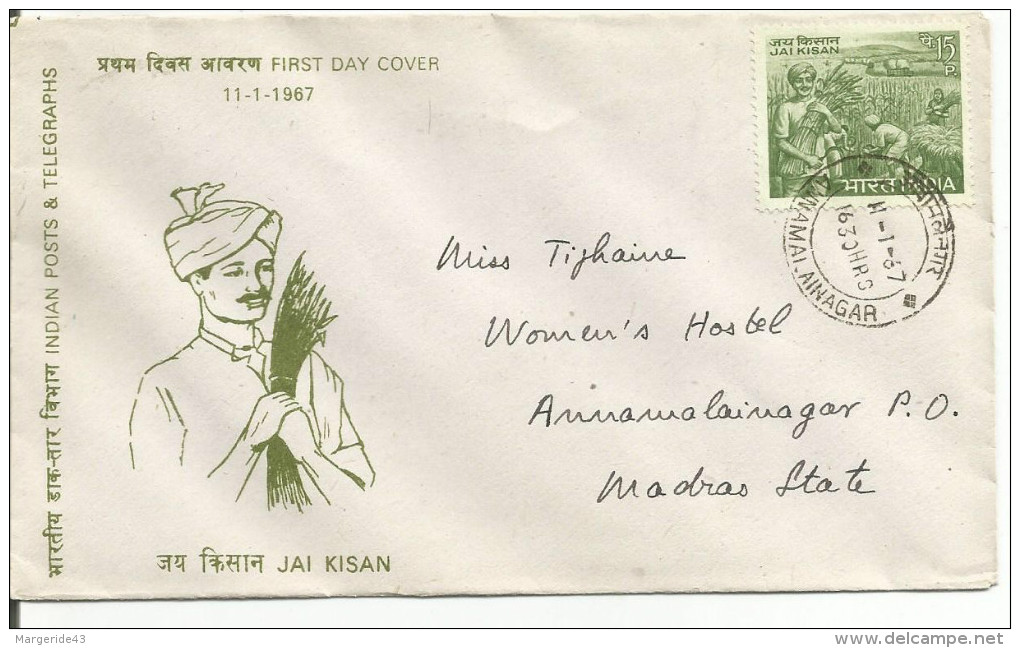 प्रथम दिवस आवरण FIRST DAY COVER
11-1-1967
भारतीय डाक-तार विभाग INDIAN POSTS & TELEGRAPHS
जय किसान JAI KISAN
जय किसान
JAI KISAN
पै. 15
P.
भारत INDIA
ANNAMALAINAGAR
1630HRS
11-1-67
Miss Tighaine
Women's Hostel
Annamalainagar P.O.
Madras State
Margeride43
www.delcampe.net